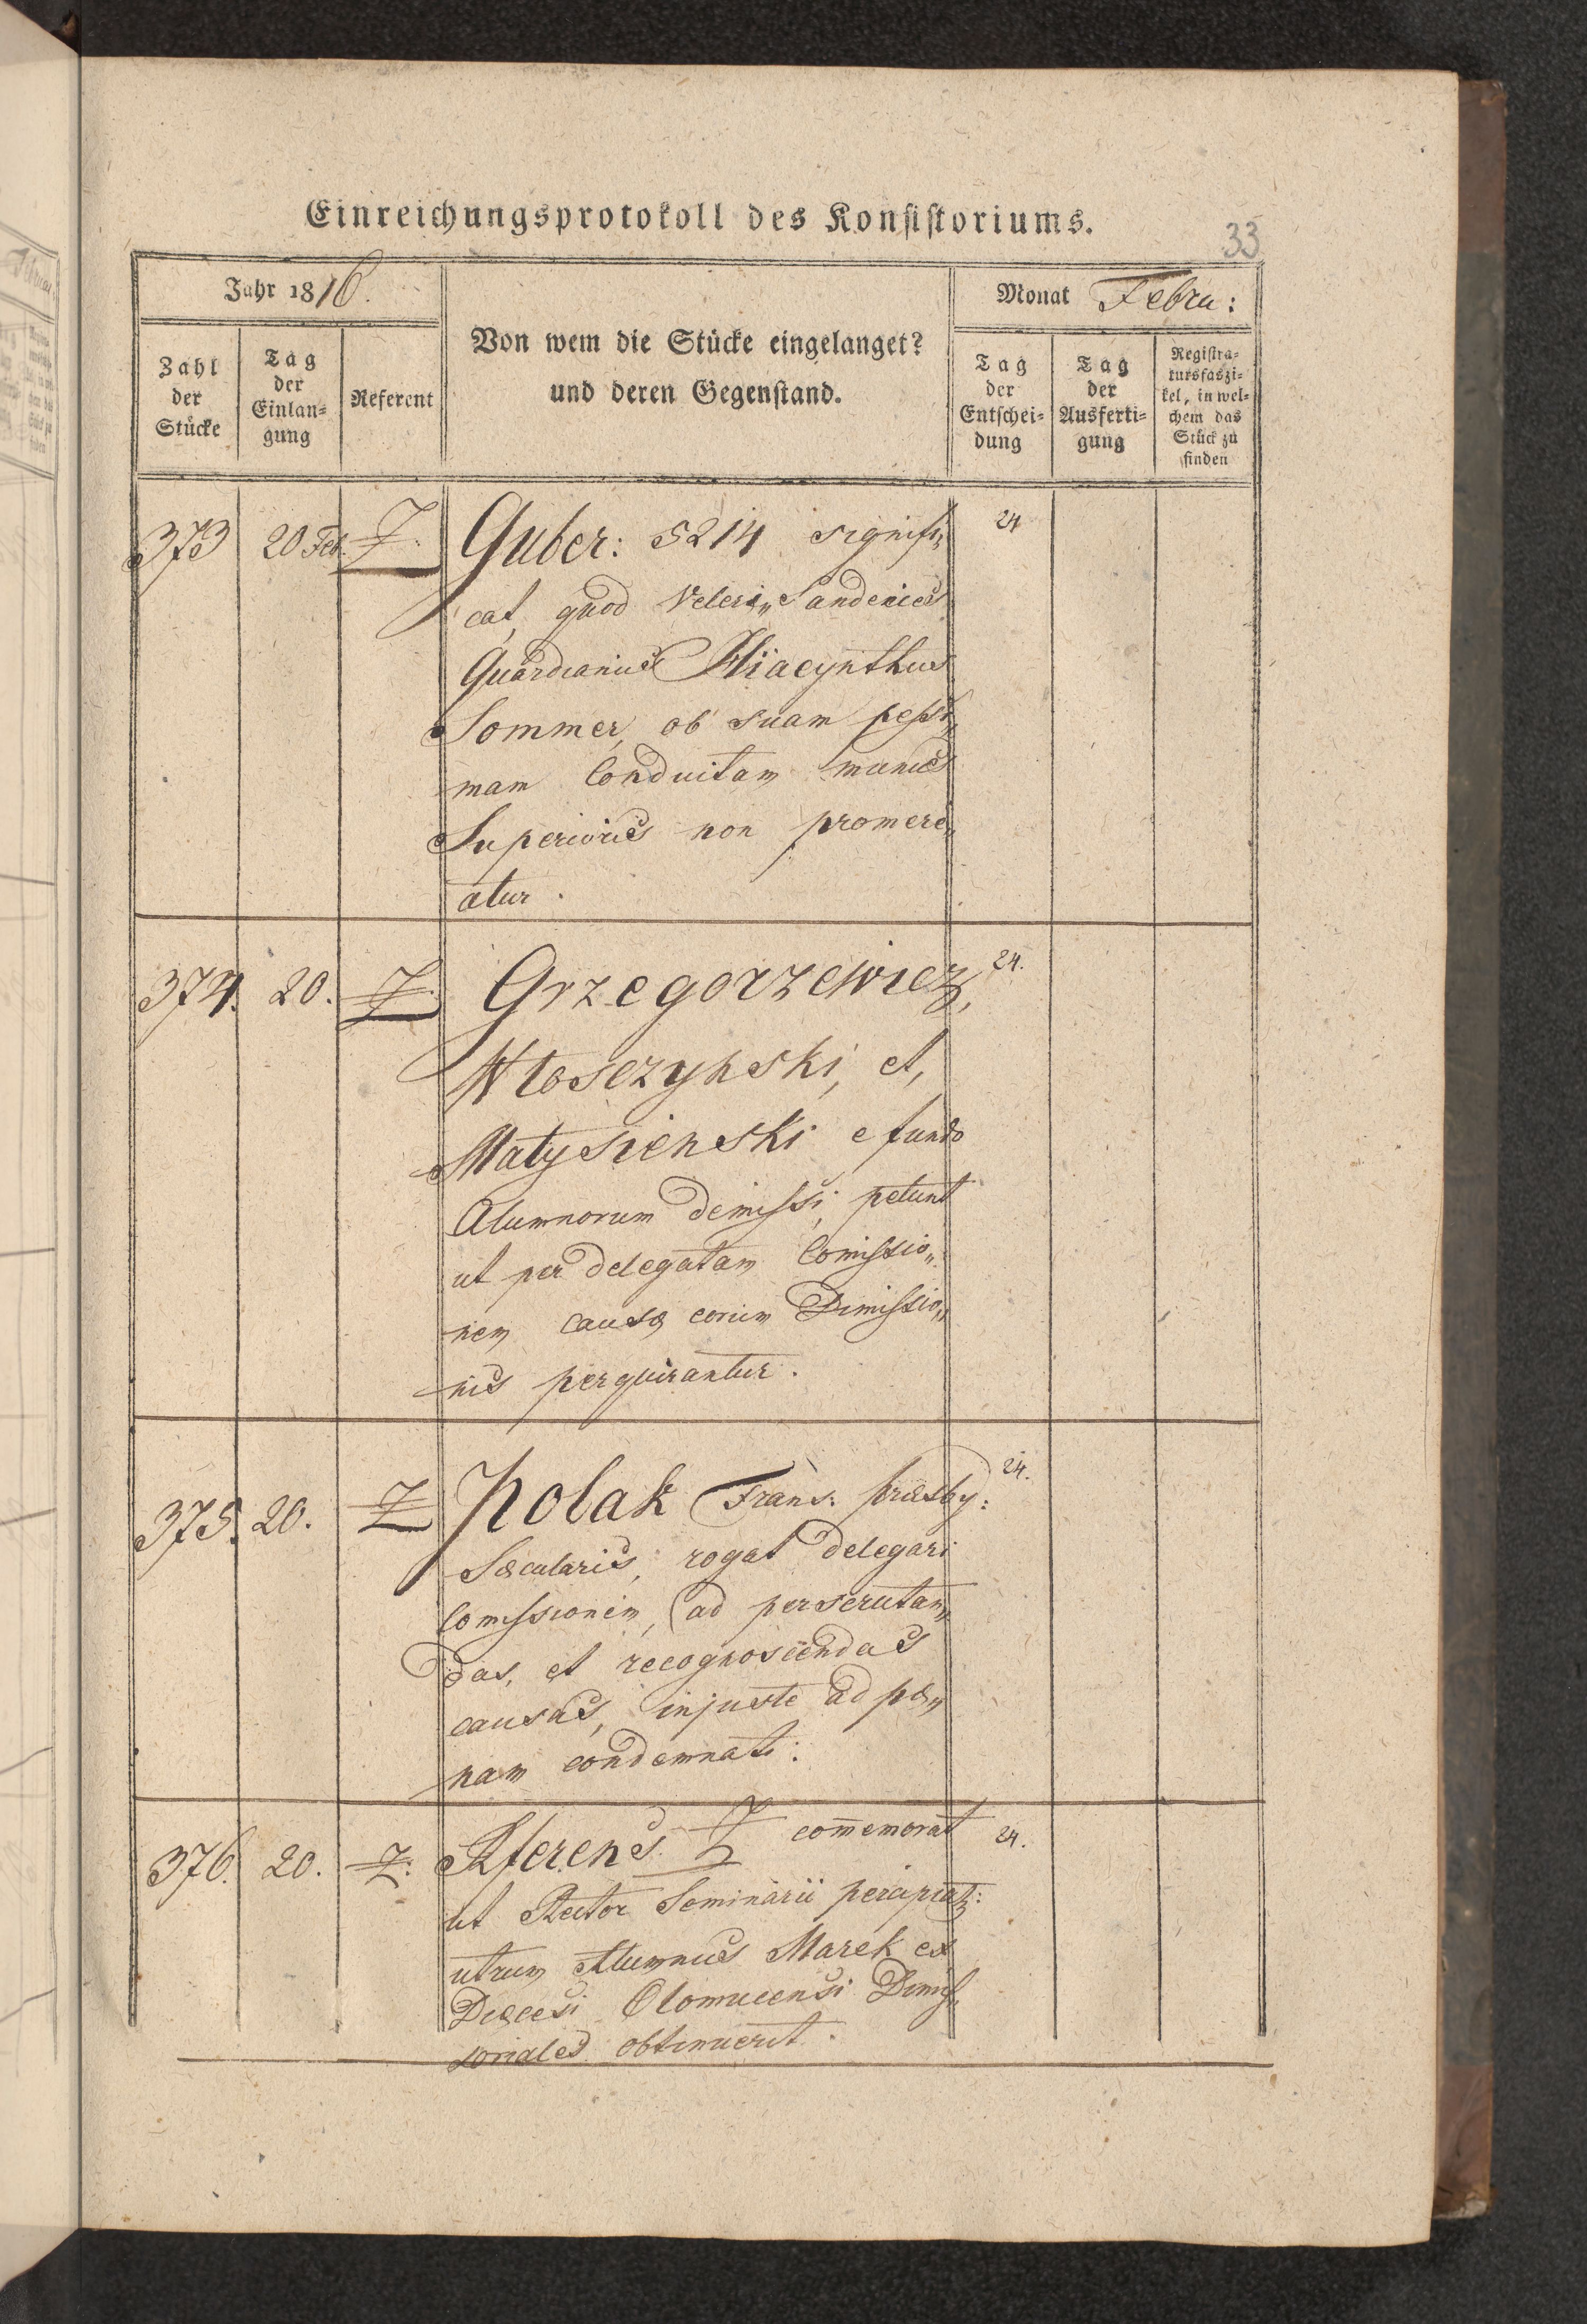 Einreichungsprotokoll des Konsistoriums.
33
Jahr 1816.
Von wem die Stücke eingelanget?
und deren Gegenstand.
Monat Febru:
Zahl
der
Stücke
Tag
der
Einlan=
gung
Referent
Tag
der
Entschei=
dung
Tag
der
Ausferti=
gung
Registra=
tursfaszi=
kel, in wel=
chem das
Stück zu
finden
373 20 Feb. Z. Guber: 5214 signifi„ 24
cat, quod Veteri„Sandecies
Guardianus Hiacynthus
Sommer, ob suam pessi„
mam Conduitam munus
Superioris non promere„
atur.
374. 20. Z. Grzegorzewicz, 24.
Wloszczynski, et,
Matysienski e fundo
Alumnorum dimissi, petunt
ut per delegatam Comissio„
nem causæ eorum Dimissio„
nis perquirantur.
375. 20. Z Polak Frans. præsby: 24.
Sæcularis, rogat delegari
Comissionem, ad perscrutan„
das, et recognoscendas
causas, injuste ad pæ„
nam condemnati.
376. 20. Z: Rferens Z com̄emorat 24.
ut Rector Seminarii percipiat:
utrum Alumnus Marek ex
Diœcesi Olomucensi Dimis„
soriales obtinuerit.